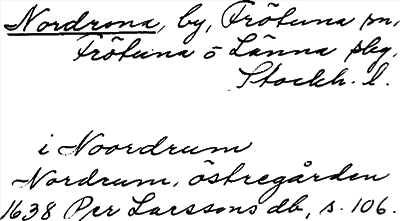 Nordrona, by, Frötuna sn,
Frötuna o Länna skg,
Stockh. l.
i Noordrum
Nordrum, östregården
1638 Per Larssons db, s. 106.